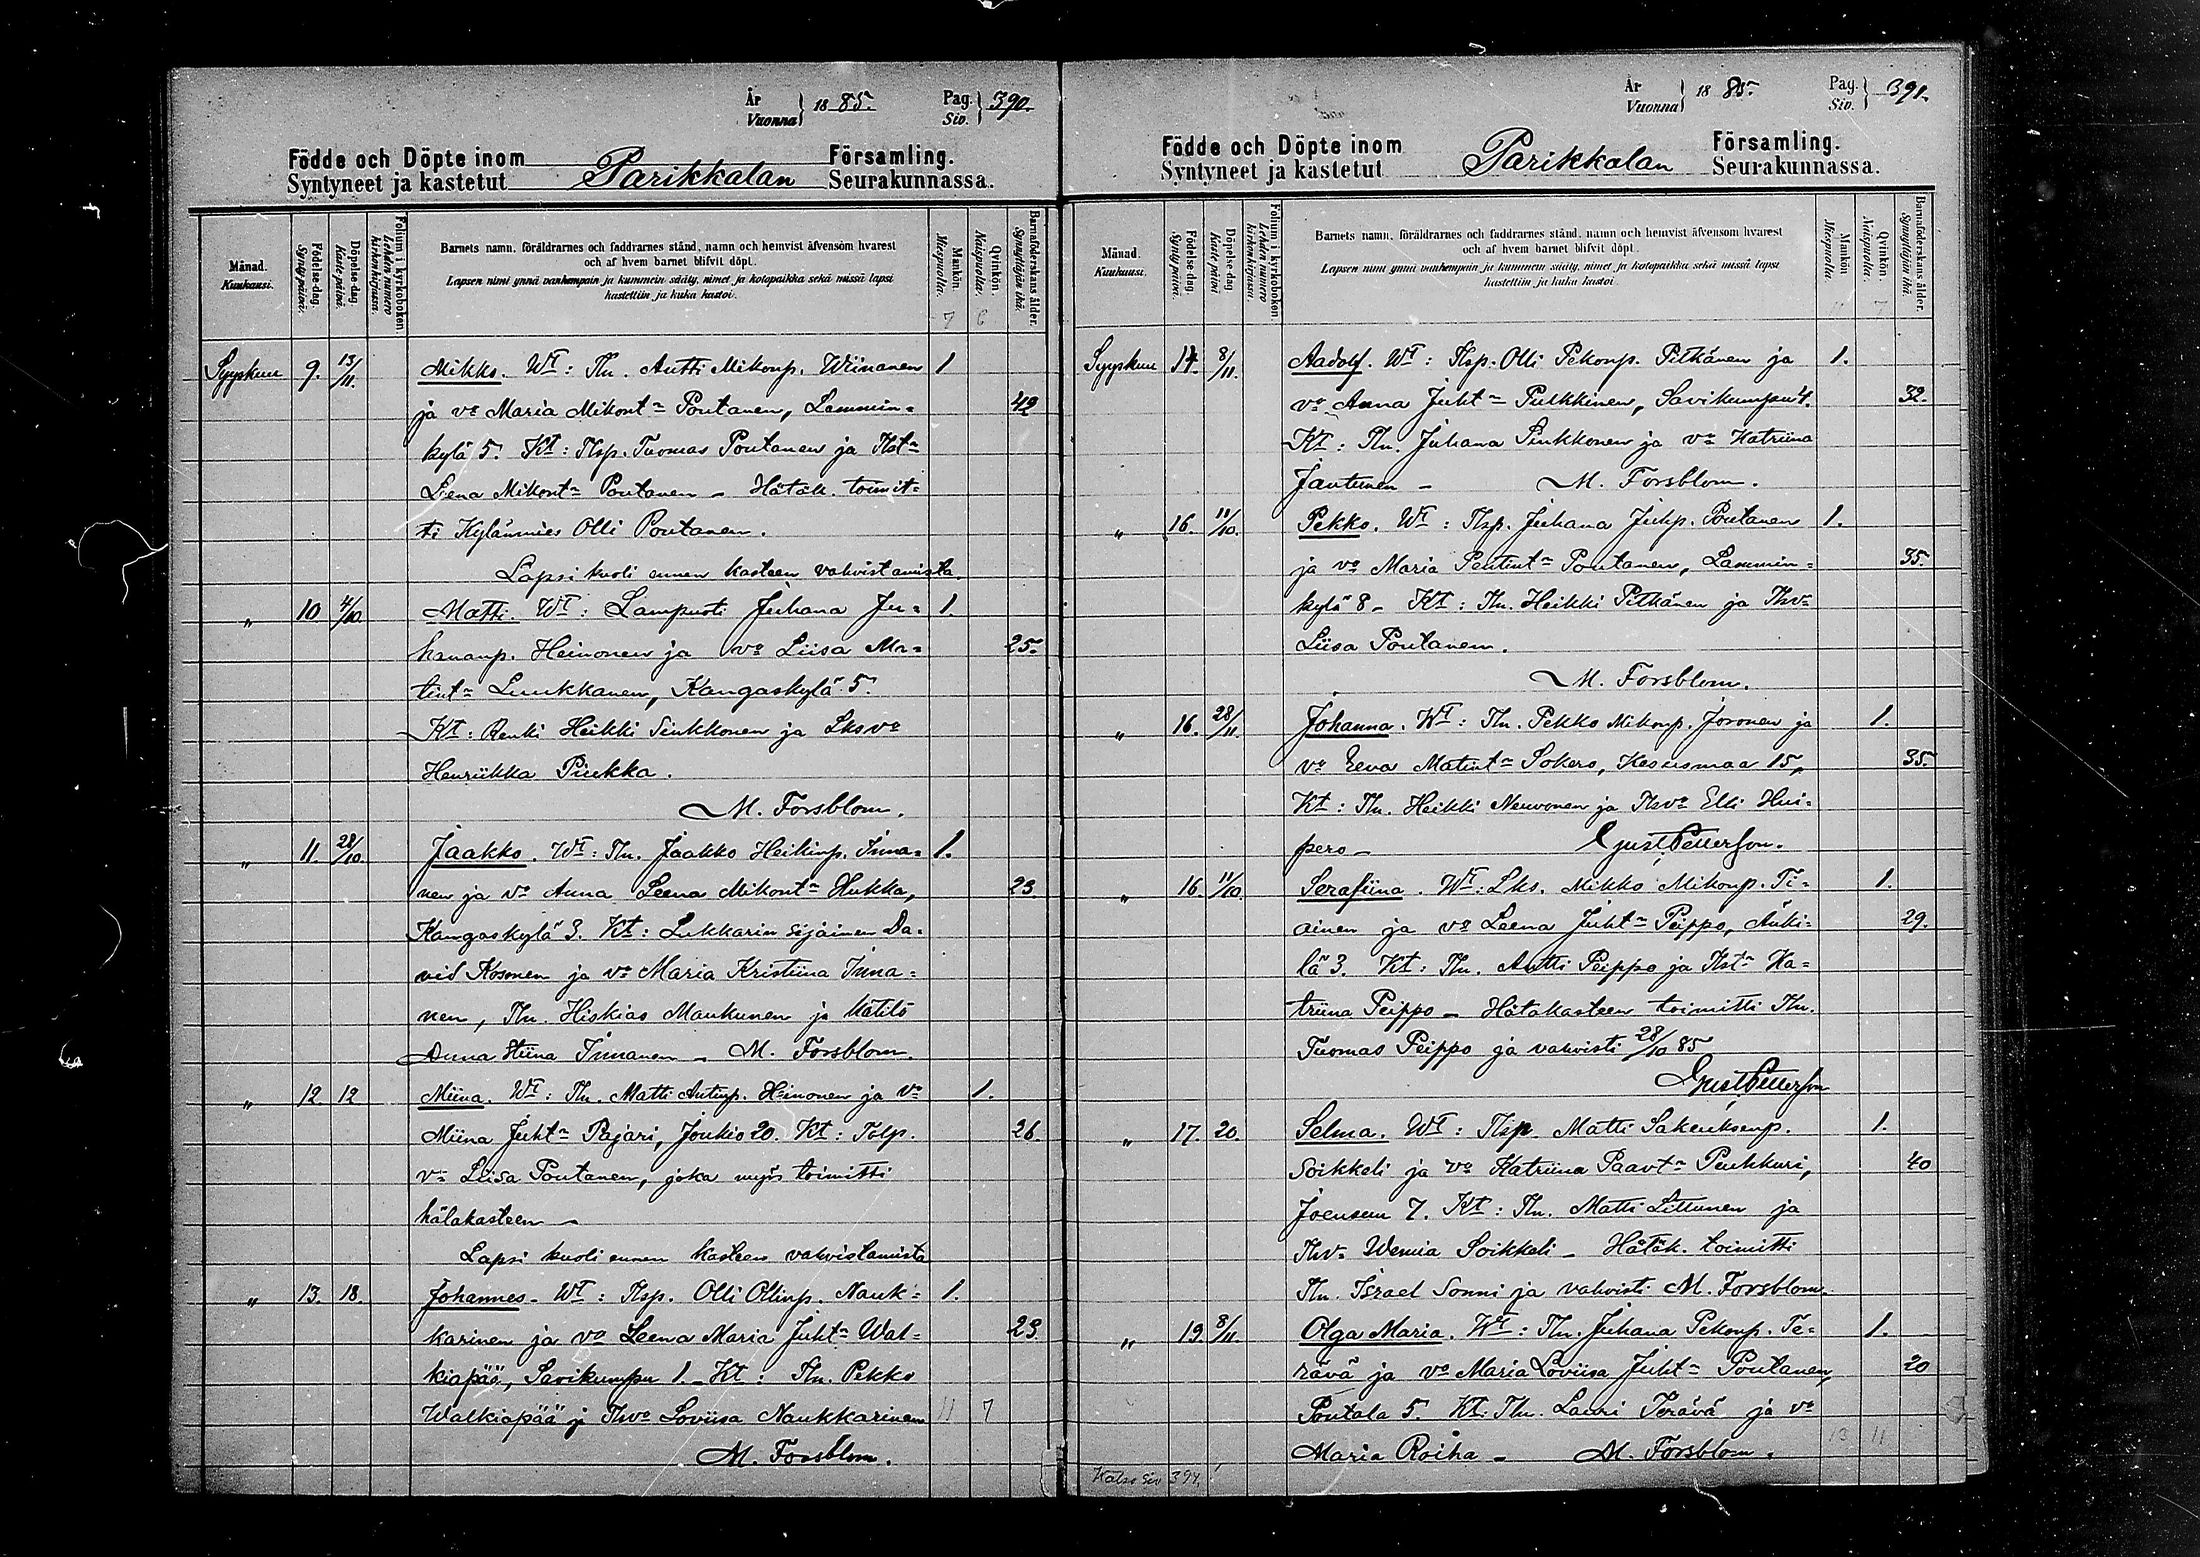 År Vuonna } 1885. Pag. Siv. } 390.
Födde och Döpte inom Parikkalan Församling.
Syntyneet ja kastetut Seurakunnassa.
Månad. Kuukausi.
Födelse-dag. Syntypäivä.
Döpelse-dag. Kastepäivä.
Folium i kyrkoboken. Lehden numero kirkonkirjassa.
Barnets namn, föräldrarnes och faddrarnes stånd, namn och hemvist äfvensom hvarest
och af hvem barnet blifvit döpt.
Lapsen nimi ynnä vanhempain ja kummein sääty, nimet ja kotopaikka sekä missä lapsi
kastettiin ja kuka kastoi.
Mankön. Miespuolia.
Qvinkön. Naispuolia.
Barnaföderskans ålder. Synnyttäjän ikä.
7 6
Syyskuu 9. 13/11. Mikko. Wt: Tln. Antti Mikonp. Wiinanen 1
ja vo Maria Mikont- Poutanen, Lammin- 42
kylä 5. Kt: Tlsp. Tuomas Poutanen ja Tlst-
Leena Mikont- Poutanen - Hätäk. toimit-
ti Kylänmies Olli Poutanen.
Lapsi kuoli ennen kasteen vahvistamista.
" 10 4/10. Matti. Wt: Lampuoti Juhana Ju- 1.
hananp. Heinonen ja vo Liisa Ma- 25.
tint- Luukkanen, Kangaskylä 5.
Kt: Renki Heikki Sinkkonen ja Lksvo
Henriikka Piukka.
M. Forsblom.
" 11. 28/10. Jaakko. Wt: Tln. Jaakko Heikinp. Inna- 1.
nen ja vo Anna Leena Mikont- Hukka, 23.
Kangaskylä 3. Kt: Lukkarin sijainen Da-
vid Kosonen ja vo Maria Kristiina Inna-
nen, Tln. Hiskias Maukunen ja Kätilö
Anna Stiina Innanen - M. Forsblom.
" 12. 12 Miina. Wt: Tln. Matti Antinp. Heinonen ja vo 1.
Miina Juht- Pajari, Joukio 20. Kt: Tolp. 26.
vo Liisa Poutanen, joka myös toimitti
hätäkasteen -
Lapsi kuoli ennen kasteen vahvistamista
" 13. 18. Johannes - Wt: Tlsp. Olli Ollinp. Nauk- 1.
karinen ja vo Leena Maria Juht- Wal- 23
kiapää, Savikumpu 1. - Kt: Tln. Pekko
Walkiapää ja Tlvo Loviisa Naukkarinen 11 7
M. Forsblom.
År Vuonna } 1885. Pag. Siv. } 391.
Födde och Döpte inom Parikkalan Församling.
Syntyneet ja kastetut Seurakunnassa.
Månad. Kuukausi.
Födelse-dag. Syntypäivä.
Döpelse-dag. Kastepäivä.
Folium i kyrkoboken. Lehden numero kirkonkirjassa.
Barnets namn, föräldrarnes och faddrarnes stånd, namn och hemvist äfvensom hvarest
och af hvem barnet blifvit döpt.
Lapsen nimi ynnä vanhempain ja kummein sääty, nimet ja kotopaikka sekä missä lapsi
kastettiin ja kuka kastoi.
Mankön Miespuolia.
Qvinkön. Naispuolia.
Barnaföderskans ålder. Synnyttäjän ikä.
11 7
Syyskuu 14. 8/11. Aadolf. Wt: Tlsp. Olli Pekonp. Pitkänen ja 1.
vo Anna Juht- Pulkkinen, Savikumpu 4. 32.
Kt: Tln. Juhana Sinkkonen ja vo Katriina
Jantunen - M. Forsblom.
" 16. 11/10. Pekko. Wt: Tlsp. Juhana Juhp. Poutanen 1.
ja vo Maria Pentint- Poutanen, Lammin- 35.
kylä 8 - Kt: Tln. Heikki Pitkänen ja Tlvo
Liisa Poutanen.
M. Forsblom.
" 16. 28/11. Johanna. Wt: Tln. Pekko Mikonp. Joronen ja 1.
vo Eeva Matint- Sokero, Kesusmaa 15, 35.
Kt: Tln. Heikki Neuvonen ja Tlsvo Elli Hui-
pero - Gust Petterson.
" 16. 11/10. Serafiina. Wt: Lks. Mikko Mikonp. Ti- 1.
ainen ja vo Leena Juht- Peippo, Änki- 29.
lä 3. Kt: Tln. Antti Peippo ja Tlst- Ka-
triina Peippo - Hätäkasteen toimitti Tln.
Tuomas Peippo ja vahvisti 28/10 85
Gust Petterson
" 17. 20. Selma. Wt: Tlsp. Matti Sakeuksenp. 1.
Soikkeli ja vo Katriina Paavt- Puhkuri, 40
Joensuu 7. Kt: Tln. Matti Littunen ja
Tlvo Wennia Soikkeli - Hätäk. toimitti
Tln. Israel Sonni ja vahvisti M. Forsblom.
" 19. 8/11. Olga Maria. Wt: Tln. Juhana Pekonp. Te- 1.
rävä ja vo Maria Loviisa Juht- Poutanen, 20
Poutala 5. Kt: Tln. Lauri Terävä ja vo
Maria Roiha - M. Forsblom. 13 11
Katso siv 394!